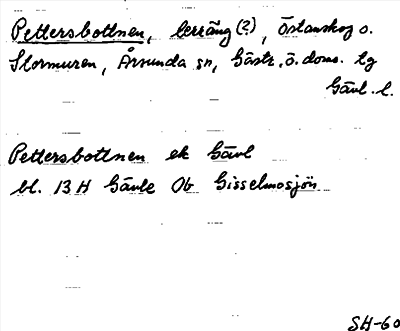 Pettersbottnen, terräng (?), Östanskog o.
Stormuren, Årsunda sn, Gästr. ö. doms. tg
Gävl. l.
Pettersbottnen ek Gävl
bl. 13 H Gävle Ob Gisselmosjön
SH-60